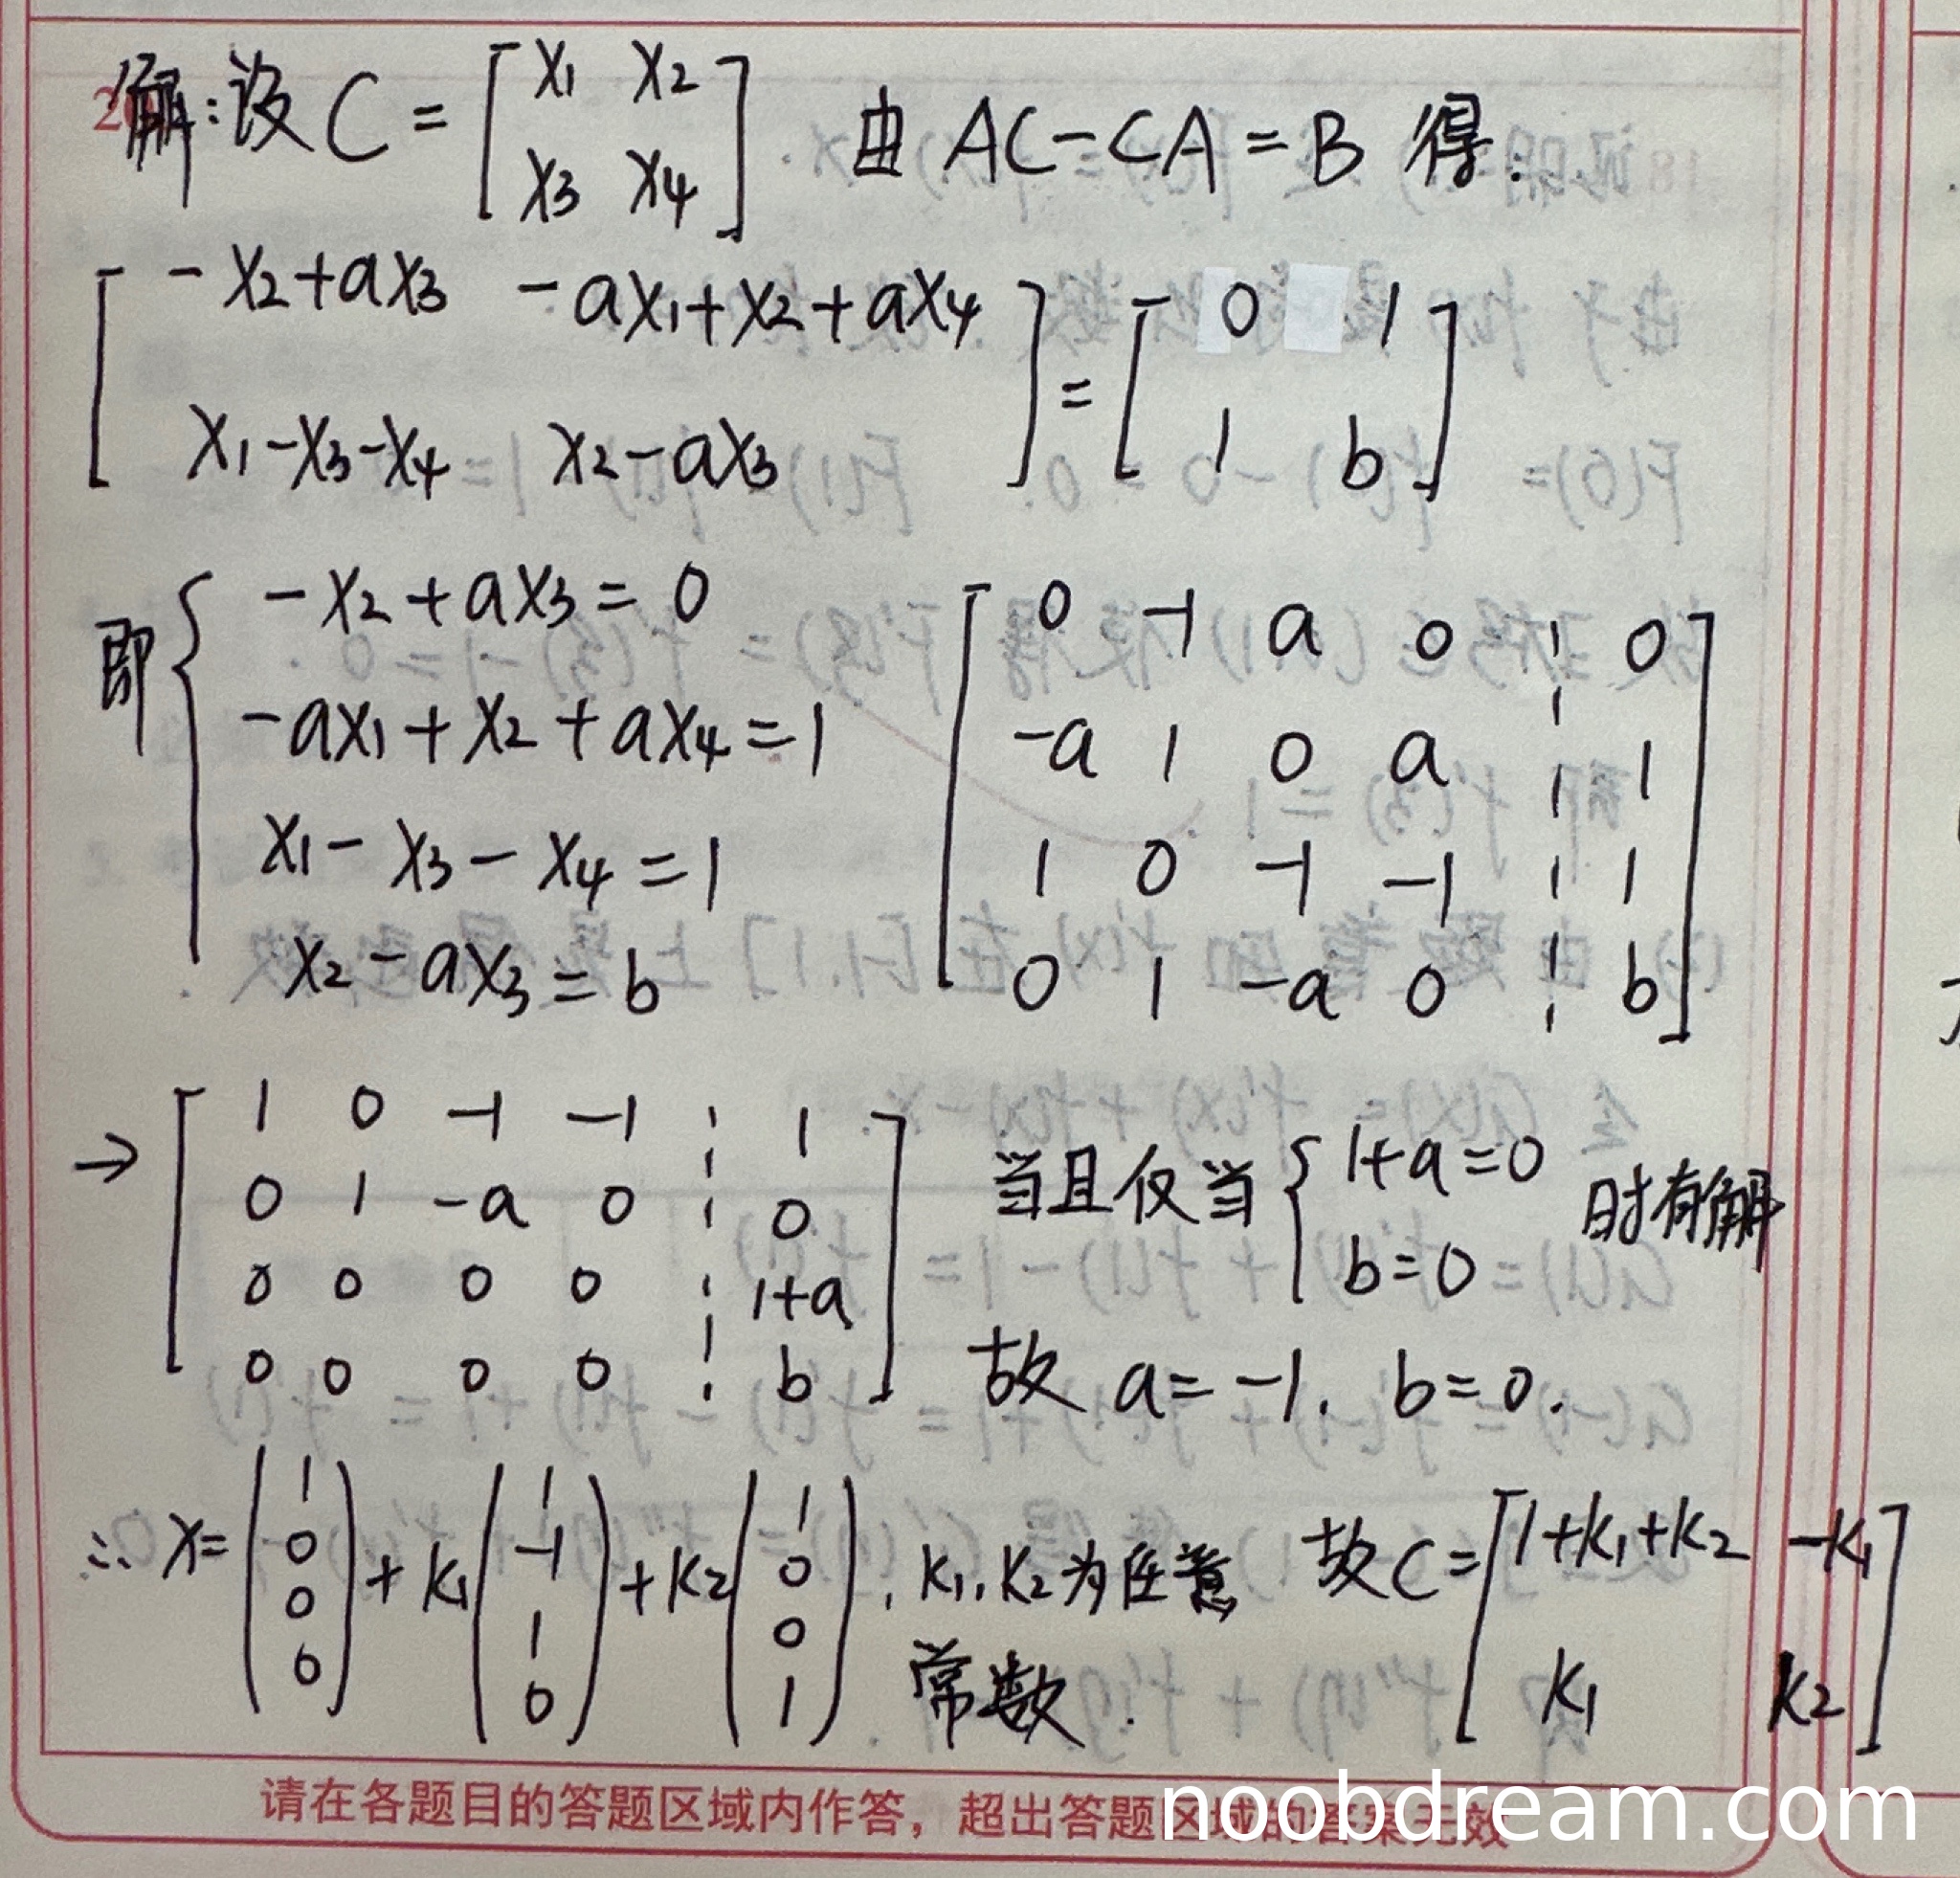 解:设 C = [x₁ x₂; x₃ x₄] 由 AC-CA=B 得:
[-x₂+ax₃ -ax₁+x₂+ax₄; x₁-x₃-x₄ x₂-ax₃] = [0 1; 1 b]
即 { -x₂+ax₃=0
-ax₁+x₂+ax₄=1
x₁-x₃-x₄=1
x₂-ax₃=b
[0 -1 a 0 ¦ 0
-a 1 0 a ¦ 1
1 0 -1 -1 ¦ 1
0 1 -a 0 ¦ b]
→ [1 0 -1 -1 ¦ 1
0 1 -a 0 ¦ 0
0 0 0 0 ¦ 1+a
0 0 0 0 ¦ b]
当且仅当 { 1+a=0
b=0 时有解
故 a=-1, b=0.
∴ x=(1 0 0 0)+k₁(1 -1 1 0)+k₂(1 0 0 1), k₁,k₂为任意
常数.
故C=[1+k₁+k₂ -k₁; k₁ k₂]
请在各题目的答题区域内作答，超出答题区域的答案无效
noobdream.com